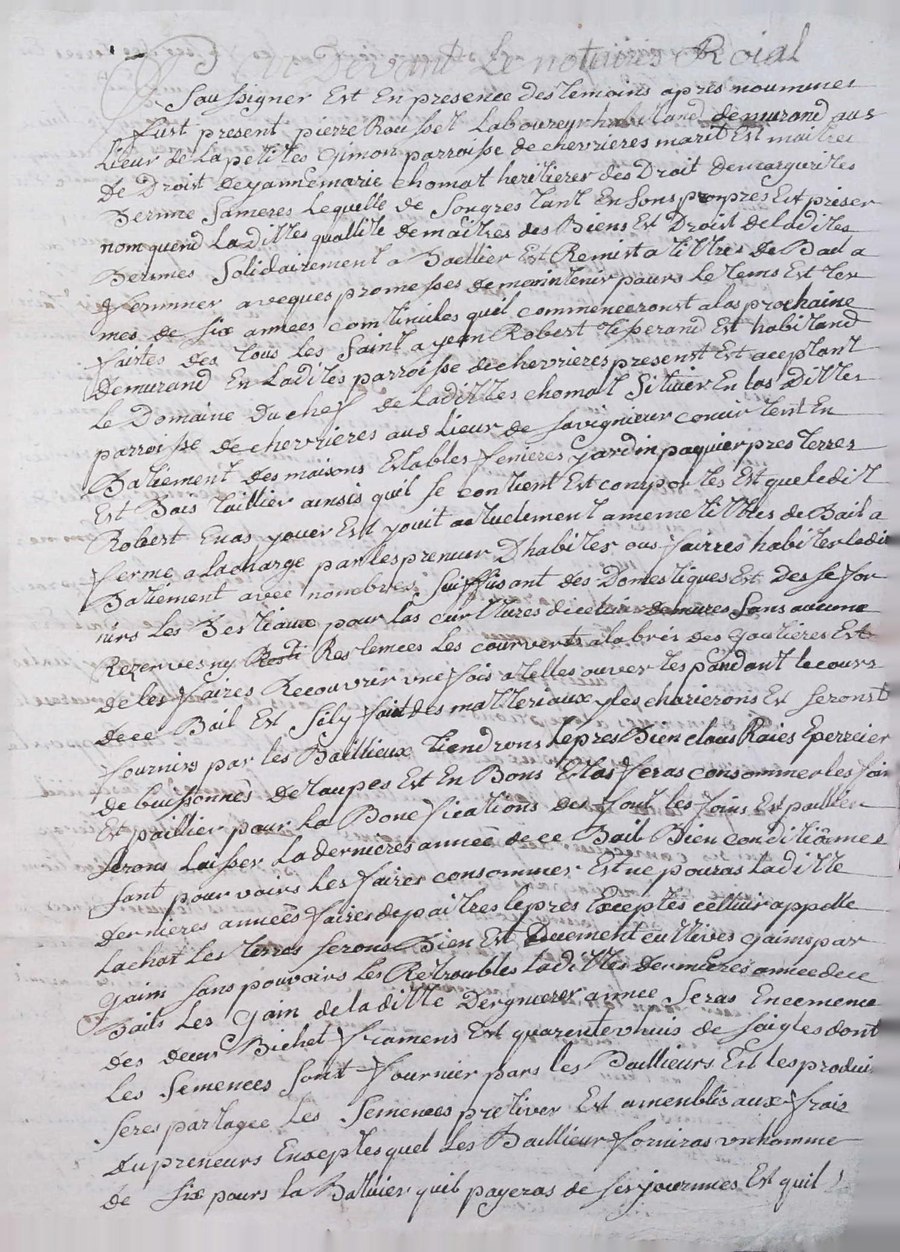 Par Devant Le notaires Roial
Saussigner Est En presence des temoins apres noummes
fust present pierre Rousset Laboureur habitand demurand aus
Lieur de La petites Gimon parroisse de chevrieres marit Est maitres
De Droit de yannemarie chomat heritieres des Droit demarguerites
Berrine Sameres Lequelle de Songres tant En Sons propres Est priser
nom quend La dittes quallite de maitres des Biens Est Droit de la dittes
Berrines Solidairement a Baillier Est Remist a tittres de Bail a
fermner aveques promesses de maintenir pours Le tems Est ter
mes de Six annees continiules quil commenceronst a las prochaine
faites des tous les Saint a yean Robert Est habitand
demurand En Ladites parroisse de chevrieres present Est aceptant
Le Domaine Du chef de Ladittes chomat Situier En las dittes
parroisse de chevrieres aus Lieur de Savignieur En
Batiement des maisons Estables fenieres yardin paquier pres terres
Est Bois taillier ainsis quil Se contient Est comportes Est que le dit
Robert En as youir Est youit actuelement a meme tittres de Bail a
ferme a Lacharge par les prenuer D'habiter ous faires habiter ledit
Batiement avec nombres Suiffisant des Domestiques Est des
nirs Les Bestiaux pour las curltures Sans aucune
Rezerves ny Restemces Les courverts a labris des goutieres Est
de les faires Recouvrir une fois a telles ouvertes pandant le cours
de ce Bail Est Sily fait des matteriaux yles charierons Est Seronst
fournirs par les Baillieux tiendrons le pres Bien claus Raies Eperreier
de buissonnes de taupes Est En Bons feras consommer les foin
Est paillier pour La Bonefications des font les foins Est paillier
Serons Laisser La dernieres annee de ce Bail Bien conditiomes
Sant pour voirs Les faires consommer Est ne pouras La ditte
dernieres annees faires depaitres le pres Exceptes celluir appelle
Lachat Les terres Serons Bien Est Duement cultives gains par
gain Sans pouvoirs les Retroubles La dittes dernieres annee de ce
Bails Les gain de la ditte Dergnieres annee Seras Encemence
des deux Bichet framens Est quarente huis de Saigles dont
Les Semences Sont fournier pars les Baillieurs Est les produi
Seres partagee Les Semences prelever Est amenblis aux frais
Du preneurs Enxeptes quel Les Baillieur forniras un homme
de Six pours la quil payeras de Ses journnees Est quil